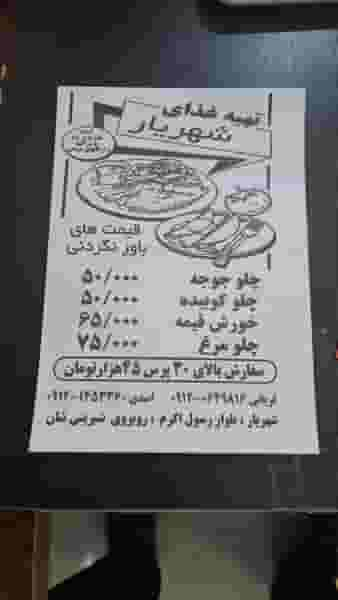 تهیه غذای
شهریار
قیمت های
باور نکردنی
چلو جوجه ۵۰/۰۰۰
چلو کوبیده ۵۰/۰۰۰
خورش قیمه ۶۵/۰۰۰
چلو مرغ ۷۵/۰۰۰
سفارش بالای ۳۰ پرس ۴۵هزارتومان
قربانی ۰۶۴۹۸۱۶-۰۹۱۲ اسدی ۱۴۵۳۳۶۰-۰۹۱۲
شهریار ، بلوار رسول اکرم ، روبروی شیرینی شان